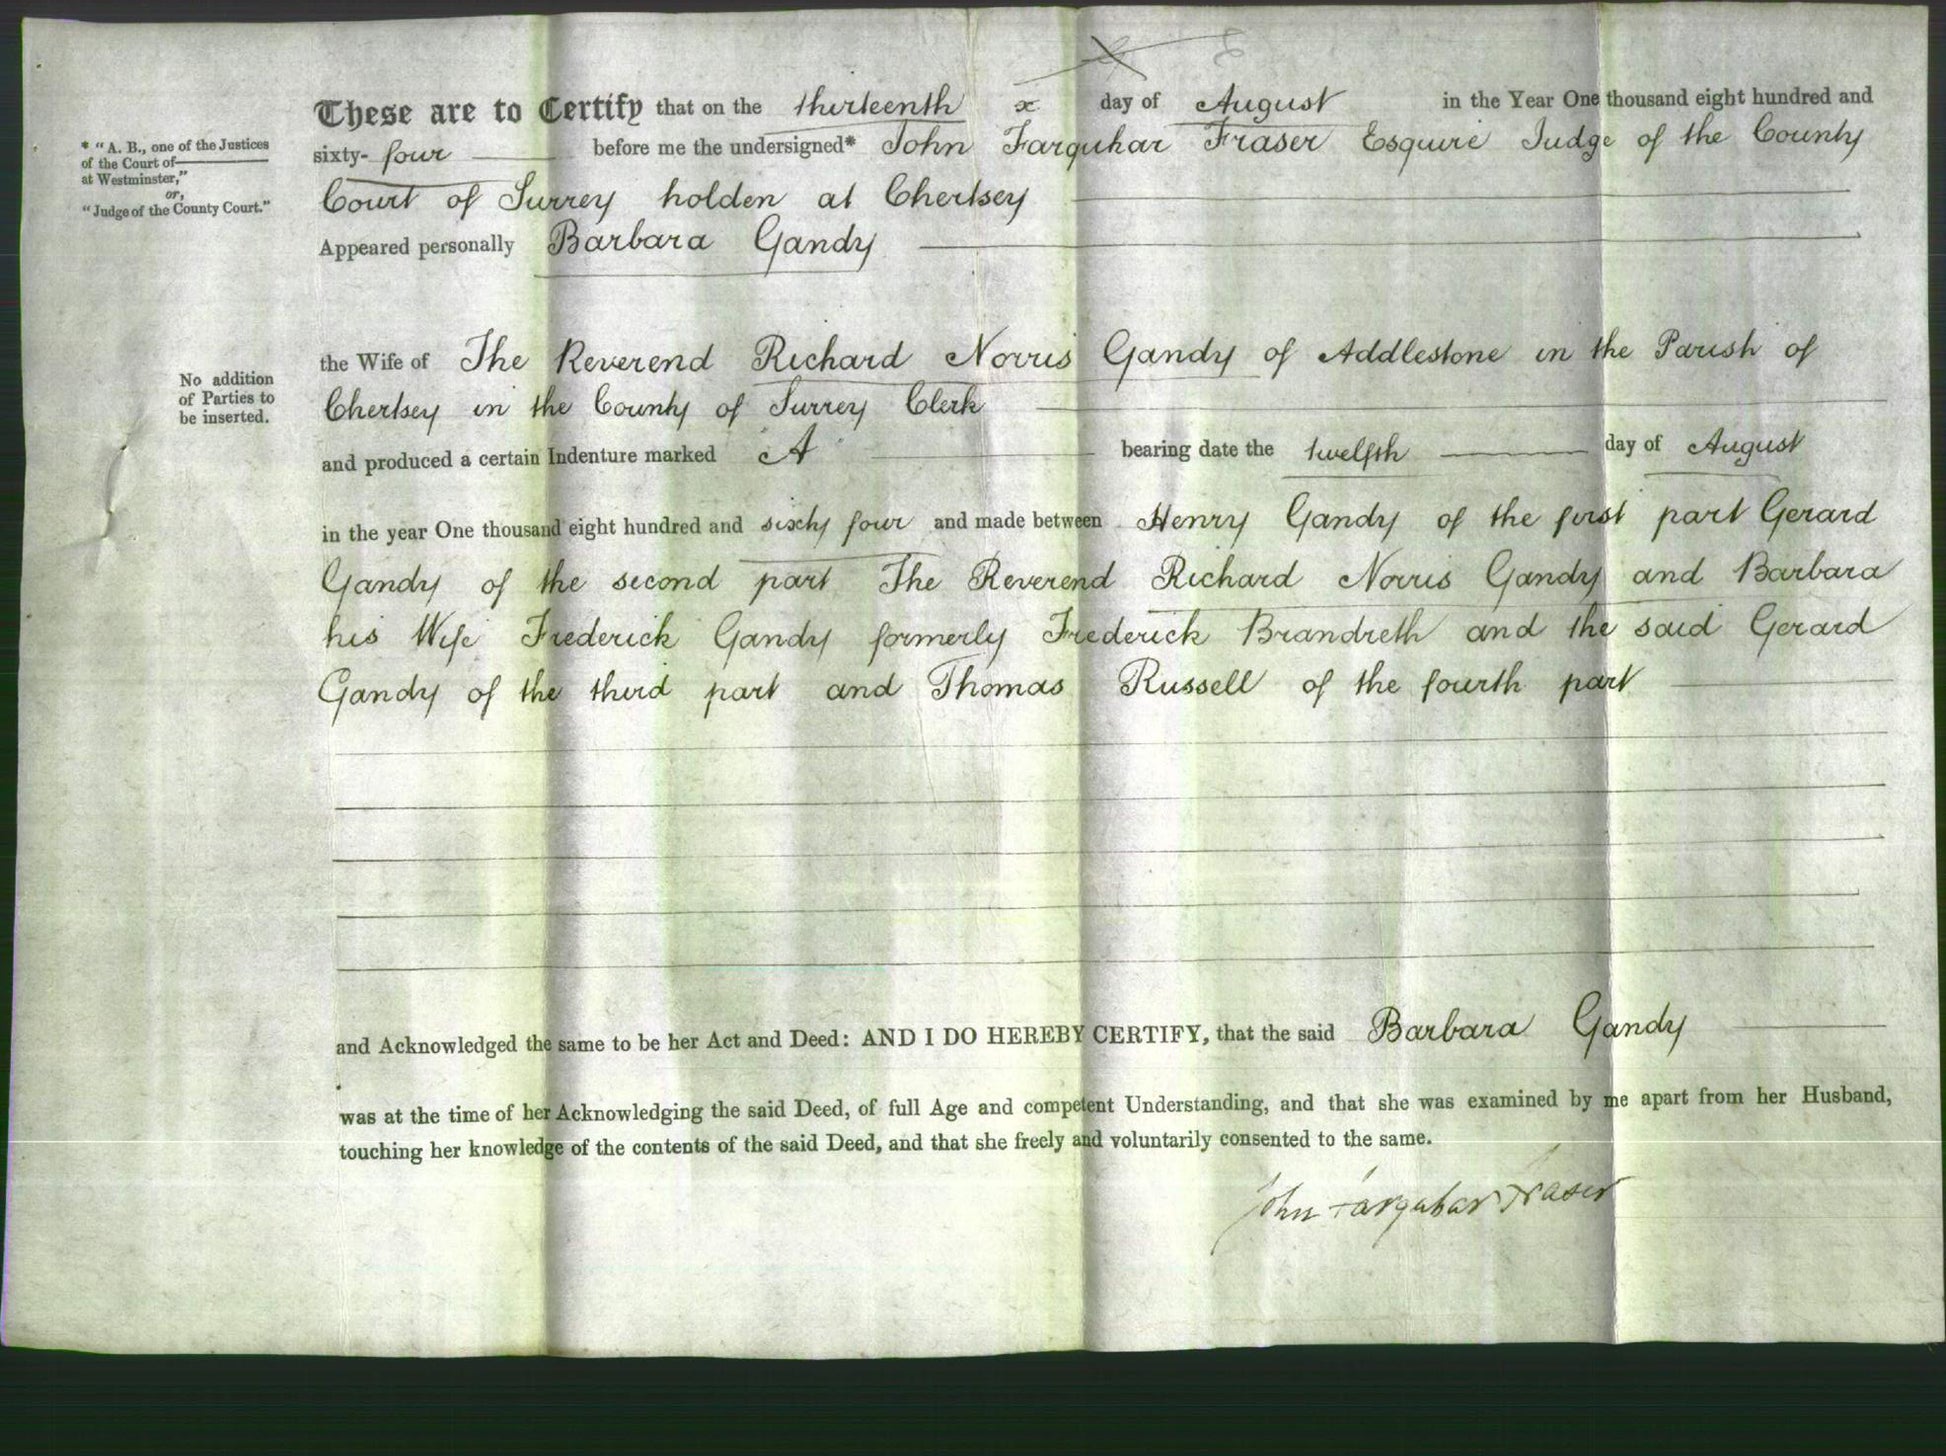 These are to Certify that on the thirteenth x day of August in the Year One thousand eight hundred and
* "A. B., one of the Justices
of the Court of
at Westminster,"
or,
"Judge of the County Court."
sixty- four before me the undersigned* John Farquhar Fraser Esquire Judge of the County
Court of Surrey holden at Chertsey
Appeared personally Barbara Gandy
the Wife of The Reverend Richard Norris Gandy of Addlestone in the Parish of
No addition
of Parties to
be inserted.
Chertsey in the County of Surrey Clerk
and produced a certain Indenture marked "A" bearing date the twelfth day of August
in the year One thousand eight hundred and sixty four and made between Henry Gandy of the first part Gerard
Gandy of the second part The Reverend Richard Norris Gandy and Barbara
his Wife Frederick Gandy formerly Frederick Brandreth and the said Gerard
Gandy of the third part and Thomas Russell of the fourth part
and Acknowledged the same to be her Act and Deed: AND I DO HEREBY CERTIFY, that the said Barbara Gandy
was at the time of her Acknowledging the said Deed, of full Age and competent Understanding, and that she was examined by me apart from her Husband,
touching her knowledge of the contents of the said Deed, and that she freely and voluntarily consented to the same.
John Farquhar Fraser